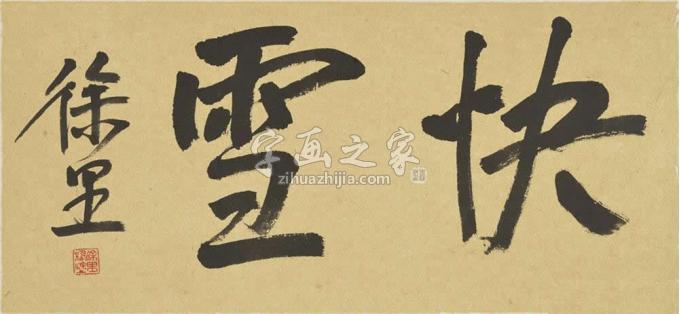 快雪
徐里
字画之家
zihuazhijia.com